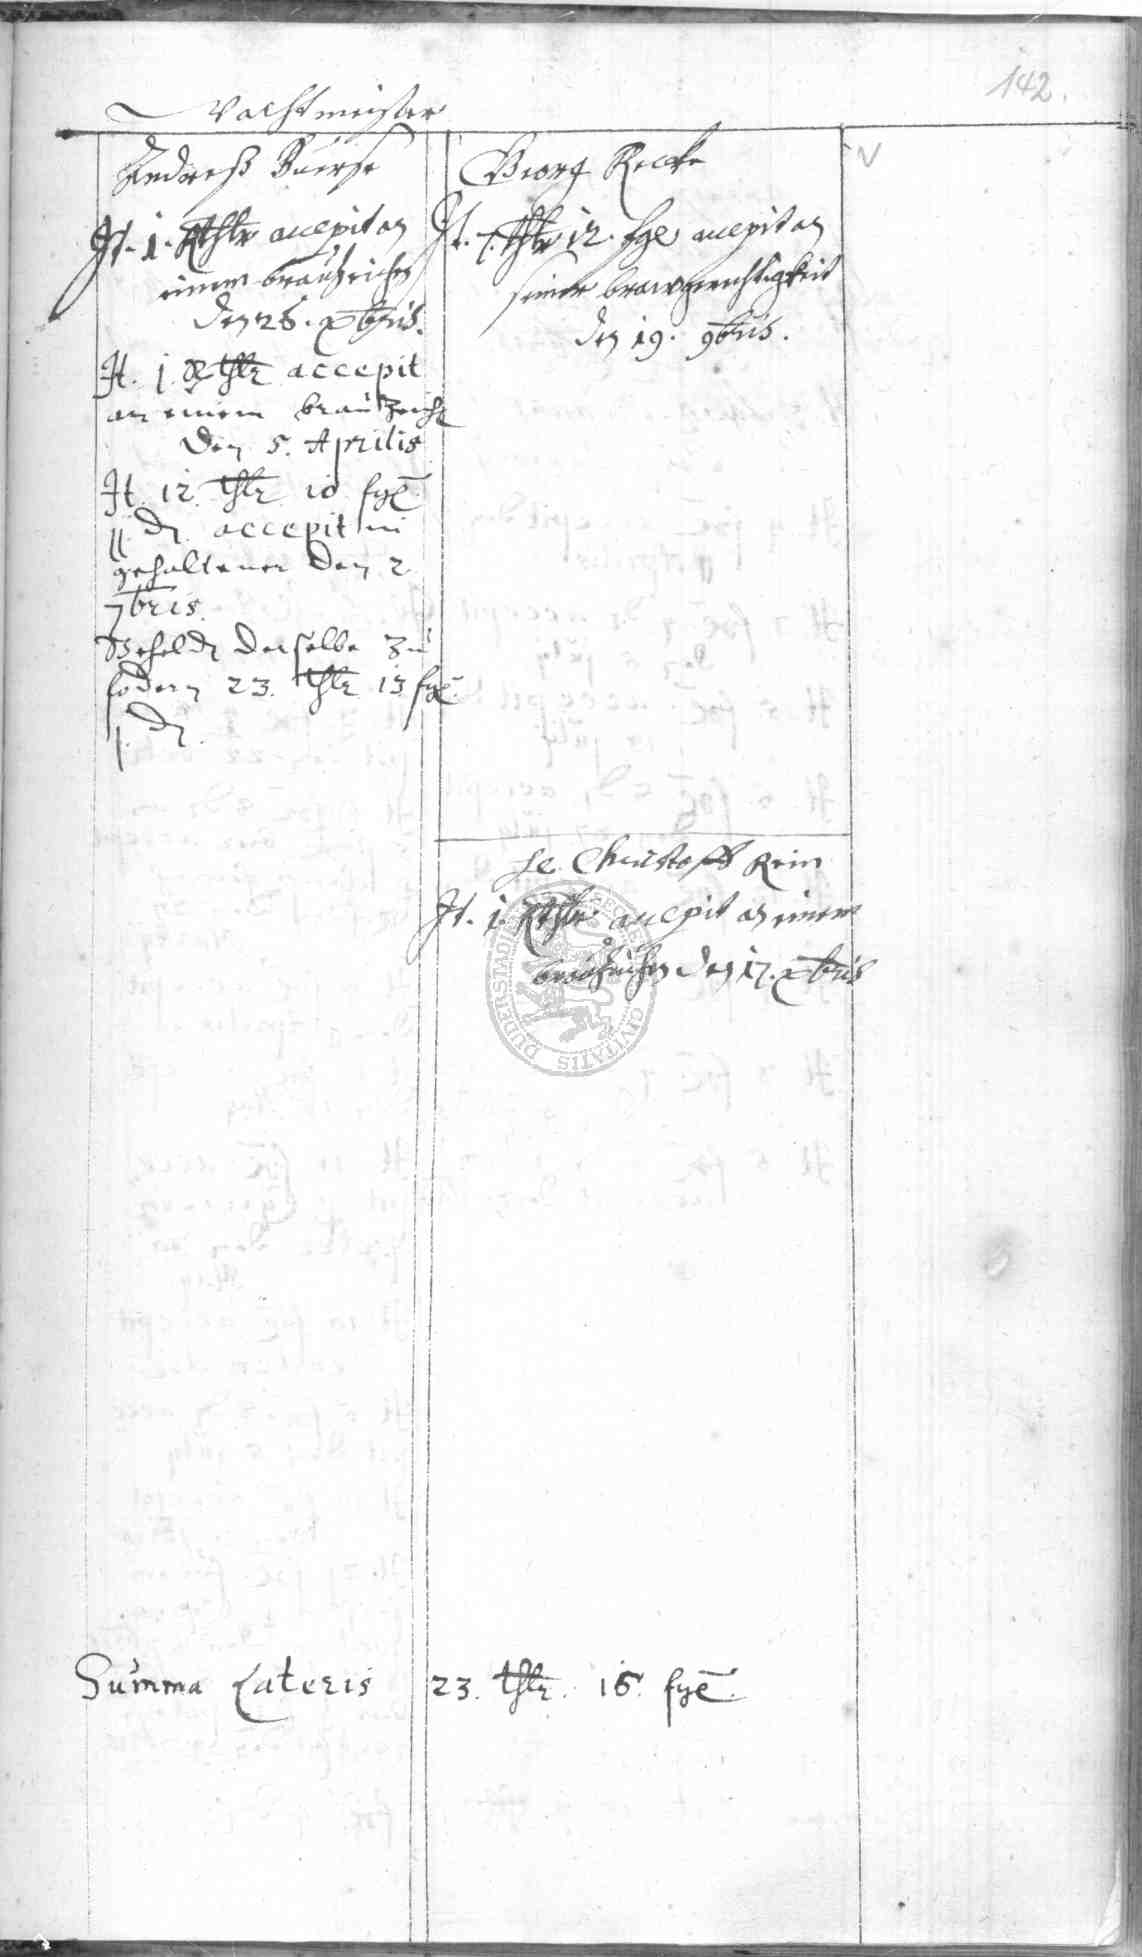 142.
Wachtmeister
Andreß Buerse
It. 1. Rthlr accepit an
einem brauzeichen
den 26. xbris.
It. j. Rthlr accepit
an einem brauzeich
den 5. Aprilis
It. 12. thlr 10 sgl
jj. d. accepit in
gehaltener den 2
7bris.
Behelt derselbe zu
fodern 23. thlr 13 sgl.
j. d.
Georg Recke
It. thlr 12. sgl accepit an
seiner brawgerechtigkeit
den 19. 9bris.
Christoff Rein
It. 1. Rthlr accepit an einem
brauzeichen den 17. xbris
DUDERSTADII CIVITATIS
Summa Lateris 23. thlr. 16. sgl.